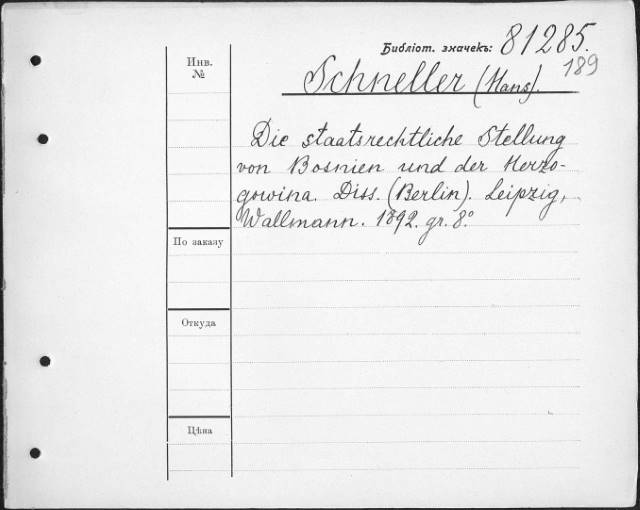 Библіот. значекъ: 81285.
189
Инв.
№
Schneller (Hans).
Die staatsrechtliche Stellung
von Bosnien und der Herzo-
gowina. Diss. (Berlin). Leipzig,
Wallmann. 1892. gr. 8.°
По заказу
Откуда
Цѣна